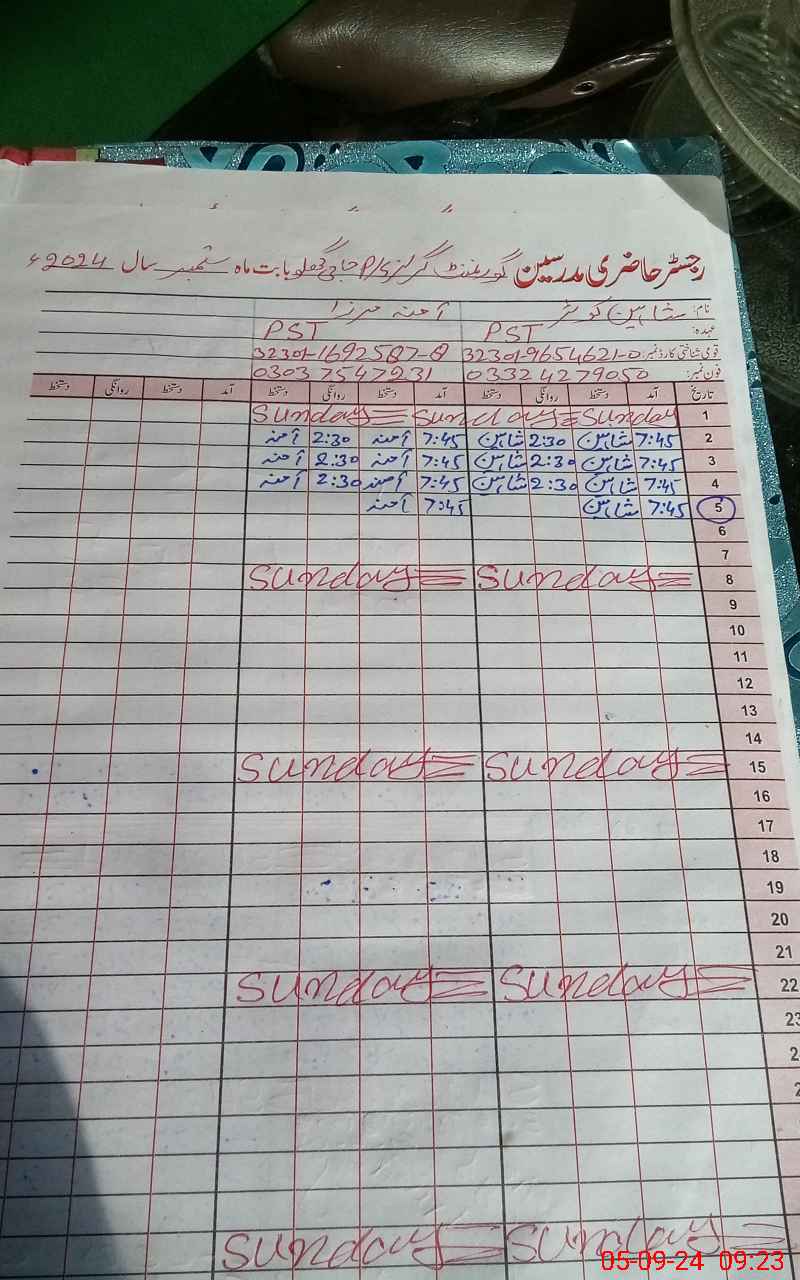 رجسٹر حاضری مدرسین گورنمنٹ گرلز P/S حاجی گھلو بابت ماہ ستمبر سال 2024ء
نام: شاہین کوثر آمنہ مرزا
عہدہ: PST PST
قومی شناختی کارڈ نمبر: 32301-9654621-0 32301-1692587-8
فون نمبر: 03324279050 03037547231
تاریخ آمد دستخط روانگی دستخط آمد دستخط روانگی دستخط آمد دستخط روانگی دستخط
1 Sunday Sunday Sunday
2 7:45 شاہین 2:30 شاہین 7:45 آمنہ 2:30 آمنہ
3 7:45 شاہین 2:30 شاہین 7:45 آمنہ 2:30 آمنہ
4 7:45 شاہین 2:30 شاہین 7:45 آمنہ 2:30 آمنہ
5 7:45 شاہین 7:45 آمنہ
6
7
8 Sunday Sunday
9
10
11
12
13
14
15 Sunday Sunday
16
17
18
19
20
21
22 Sunday Sunday
23
Sunday Sunday
05-09-24 09:23